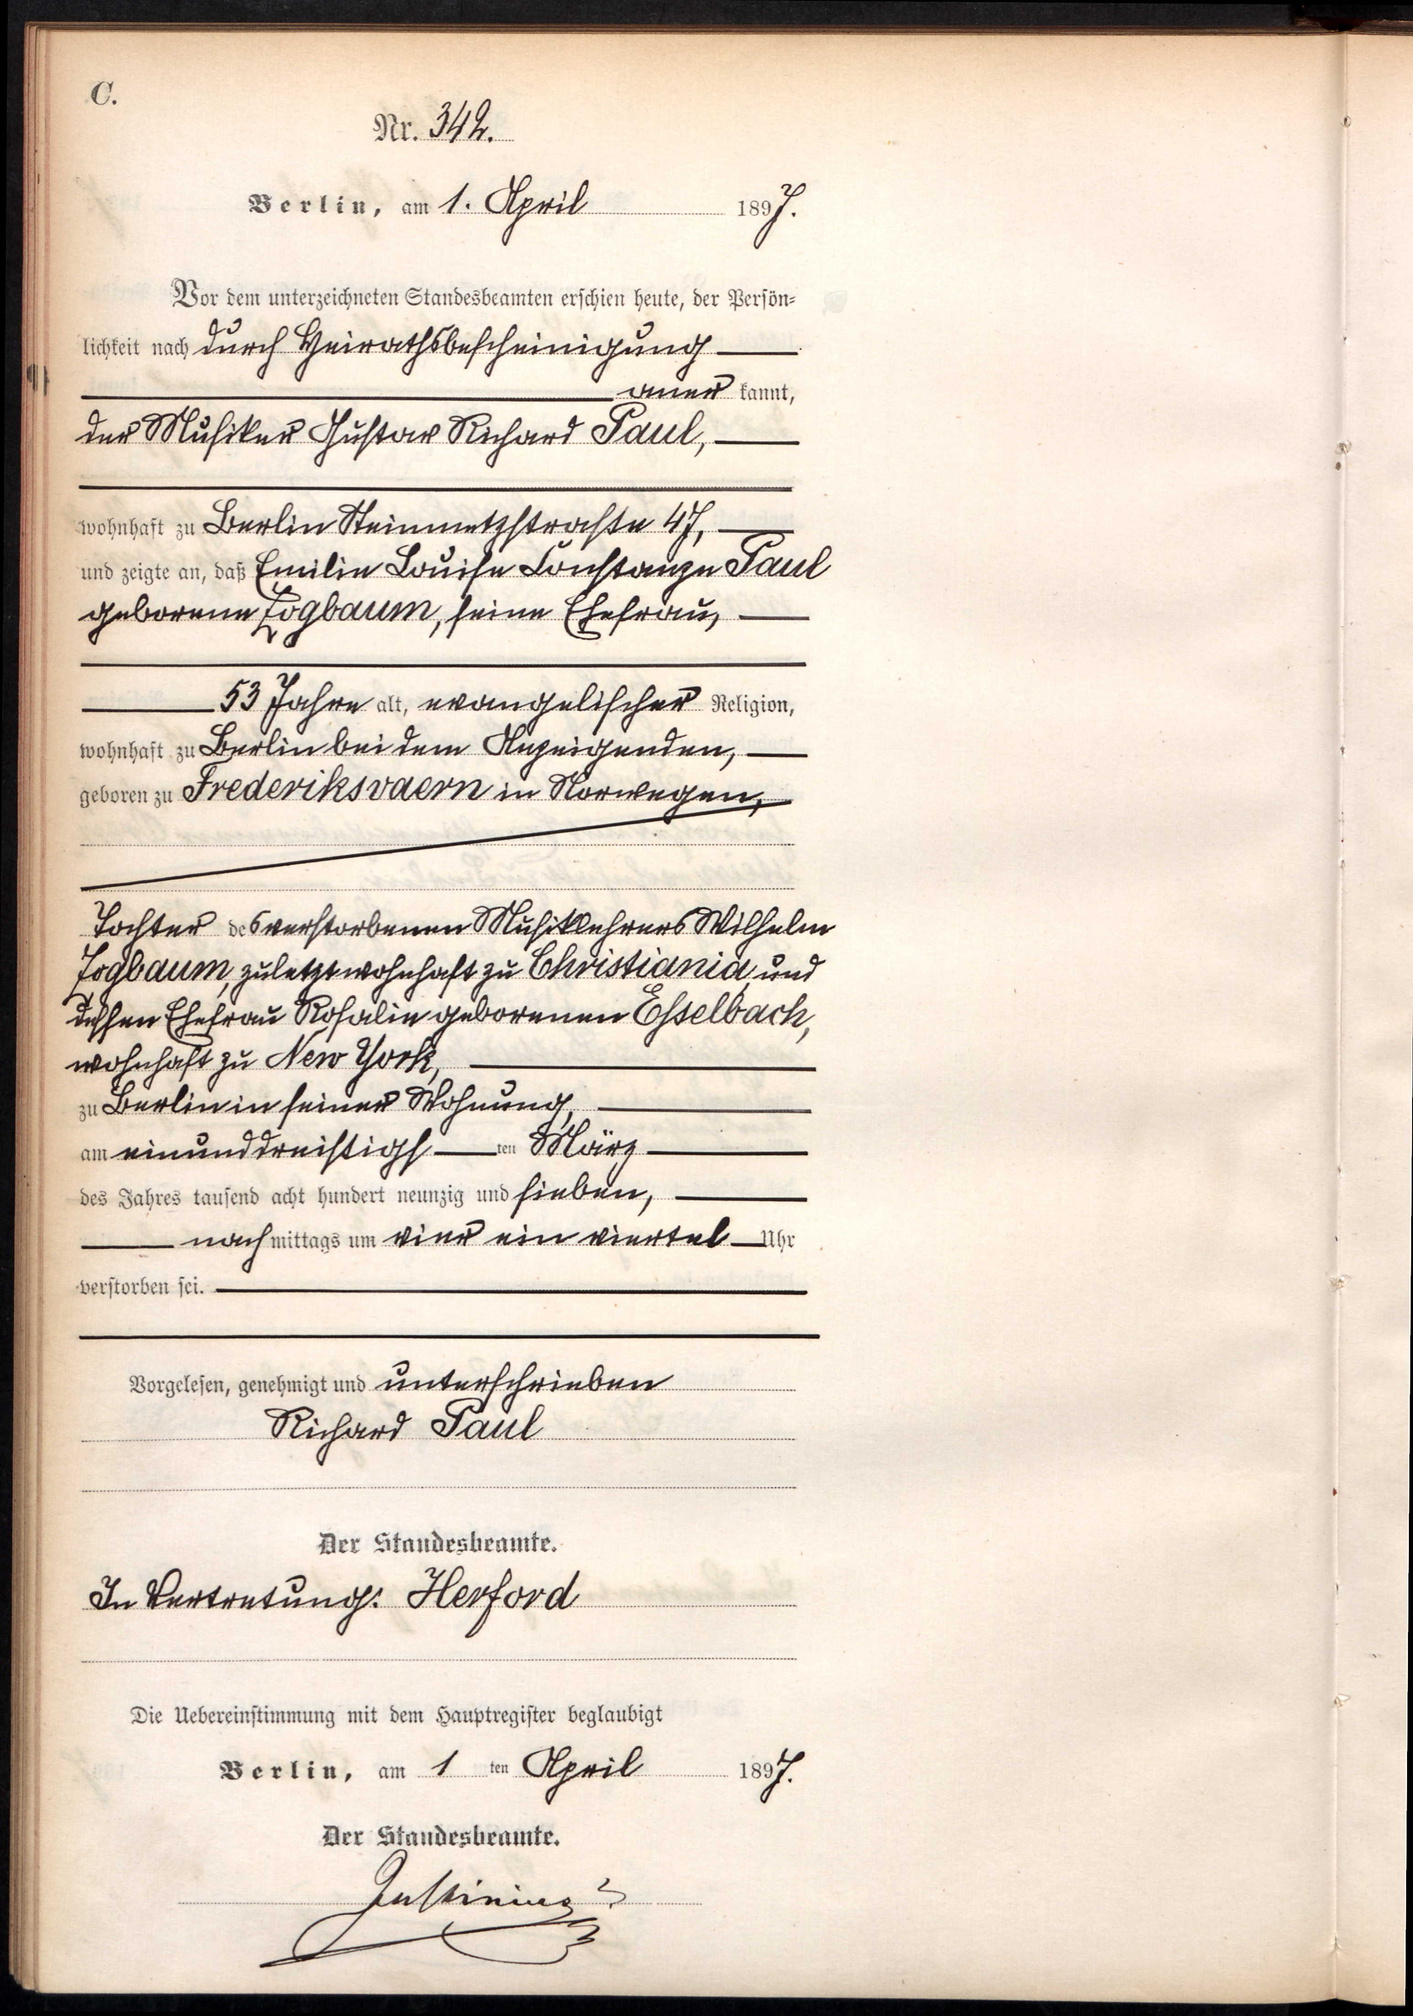 C.
Nr. 342.
Berlin, am 1. April 1897.
Vor dem unterzeichneten Standesbeamten erschien heute, der Persön-
lichkeit nach durch Heirathsbescheinigung
aner kannt,
der Musiker Gustav Richard Paul,
wohnhaft zu Berlin Steinmetzstraße 47,
und zeigte an, daß Emilie Louise Constanze Paul
geborene Zogbaum, seine Ehefrau,
53 Jahre alt, evangelischer Religion,
wohnhaft zu Berlin bei dem Anzeigenden,
geboren zu Frederiksvaern in Norwegen,
Tochter des verstorbenen Musiklehrers Wilhelm
Zogbaum, zuletzt wohnhaft zu Christiania, und
dessen Ehefrau Rosalie geborenen Esselbach,
wohnhaft zu New York,
zu Berlin in seiner Wohnung,
am einunddreißigs ten März
des Jahres tausend acht hundert neunzig und sieben,
nach mittags um vier ein viertel Uhr
verstorben sei.
Vorgelesen, genehmigt und unterschrieben
Richard Paul
Der Standesbeamte.
In Vertretung: Herford
Die Uebereinstimmung mit dem Hauptregister beglaubigt
Berlin, am 1 ten April 1897.
Der Standesbeamte.